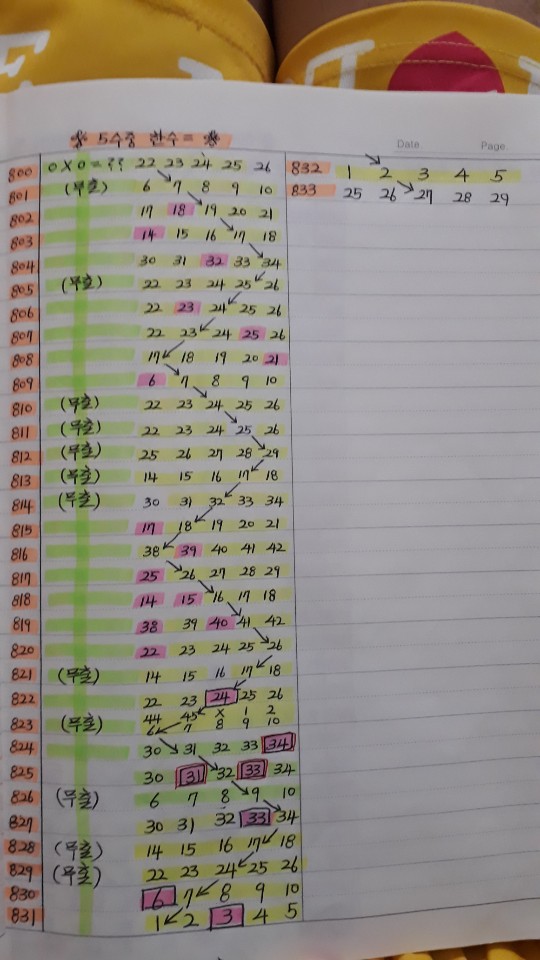 ※ 5수중 한수= ※
Date. Page.
800 0X0=?? 22 23 24 25 26
801 (무출) 6 7 8 9 10
802 17 18 19 20 21
803 14 15 16 17 18
804 30 31 32 33 34
805 (무출) 22 23 24 25 26
806 22 23 24 25 26
807 22 23 24 25 26
808 17 18 19 20 21
809 6 7 8 9 10
810 (무출) 22 23 24 25 26
811 (무출) 22 23 24 25 26
812 (무출) 25 26 27 28 29
813 (무출) 14 15 16 17 18
814 (무출) 30 31 32 33 34
815 17 18 19 20 21
816 38 39 40 41 42
817 25 26 27 28 29
818 14 15 16 17 18
819 38 39 40 41 42
820 22 23 24 25 26
821 (무출) 14 15 16 17 18
822 22 23 24 25 26
44 45 X 1 2
823 (무출) 6 7 8 9 10
824 30 31 32 33 34
825 30 31 32 33 34
826 (무출) 6 7 8 9 10
827 30 31 32 33 34
828 (무출) 14 15 16 17 18
829 (무출) 22 23 24 25 26
830 6 7 8 9 10
831 1 2 3 4 5
832 1 2 3 4 5
833 25 26 27 28 29